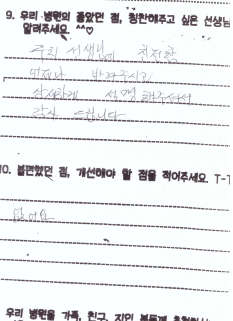 9. 우리 병원의 좋았던 점, 칭찬해주고 싶은 선생님
알려주세요. ^^♡
주치 선생님께 친절함
언제나 반겨주시고
상세하게 설명해주셔서
감사드립니다
10. 불편했던 점, 개선해야 할 점을 적어주세요. T-T
없어요
우리 병원을 가족, 친구, 지인